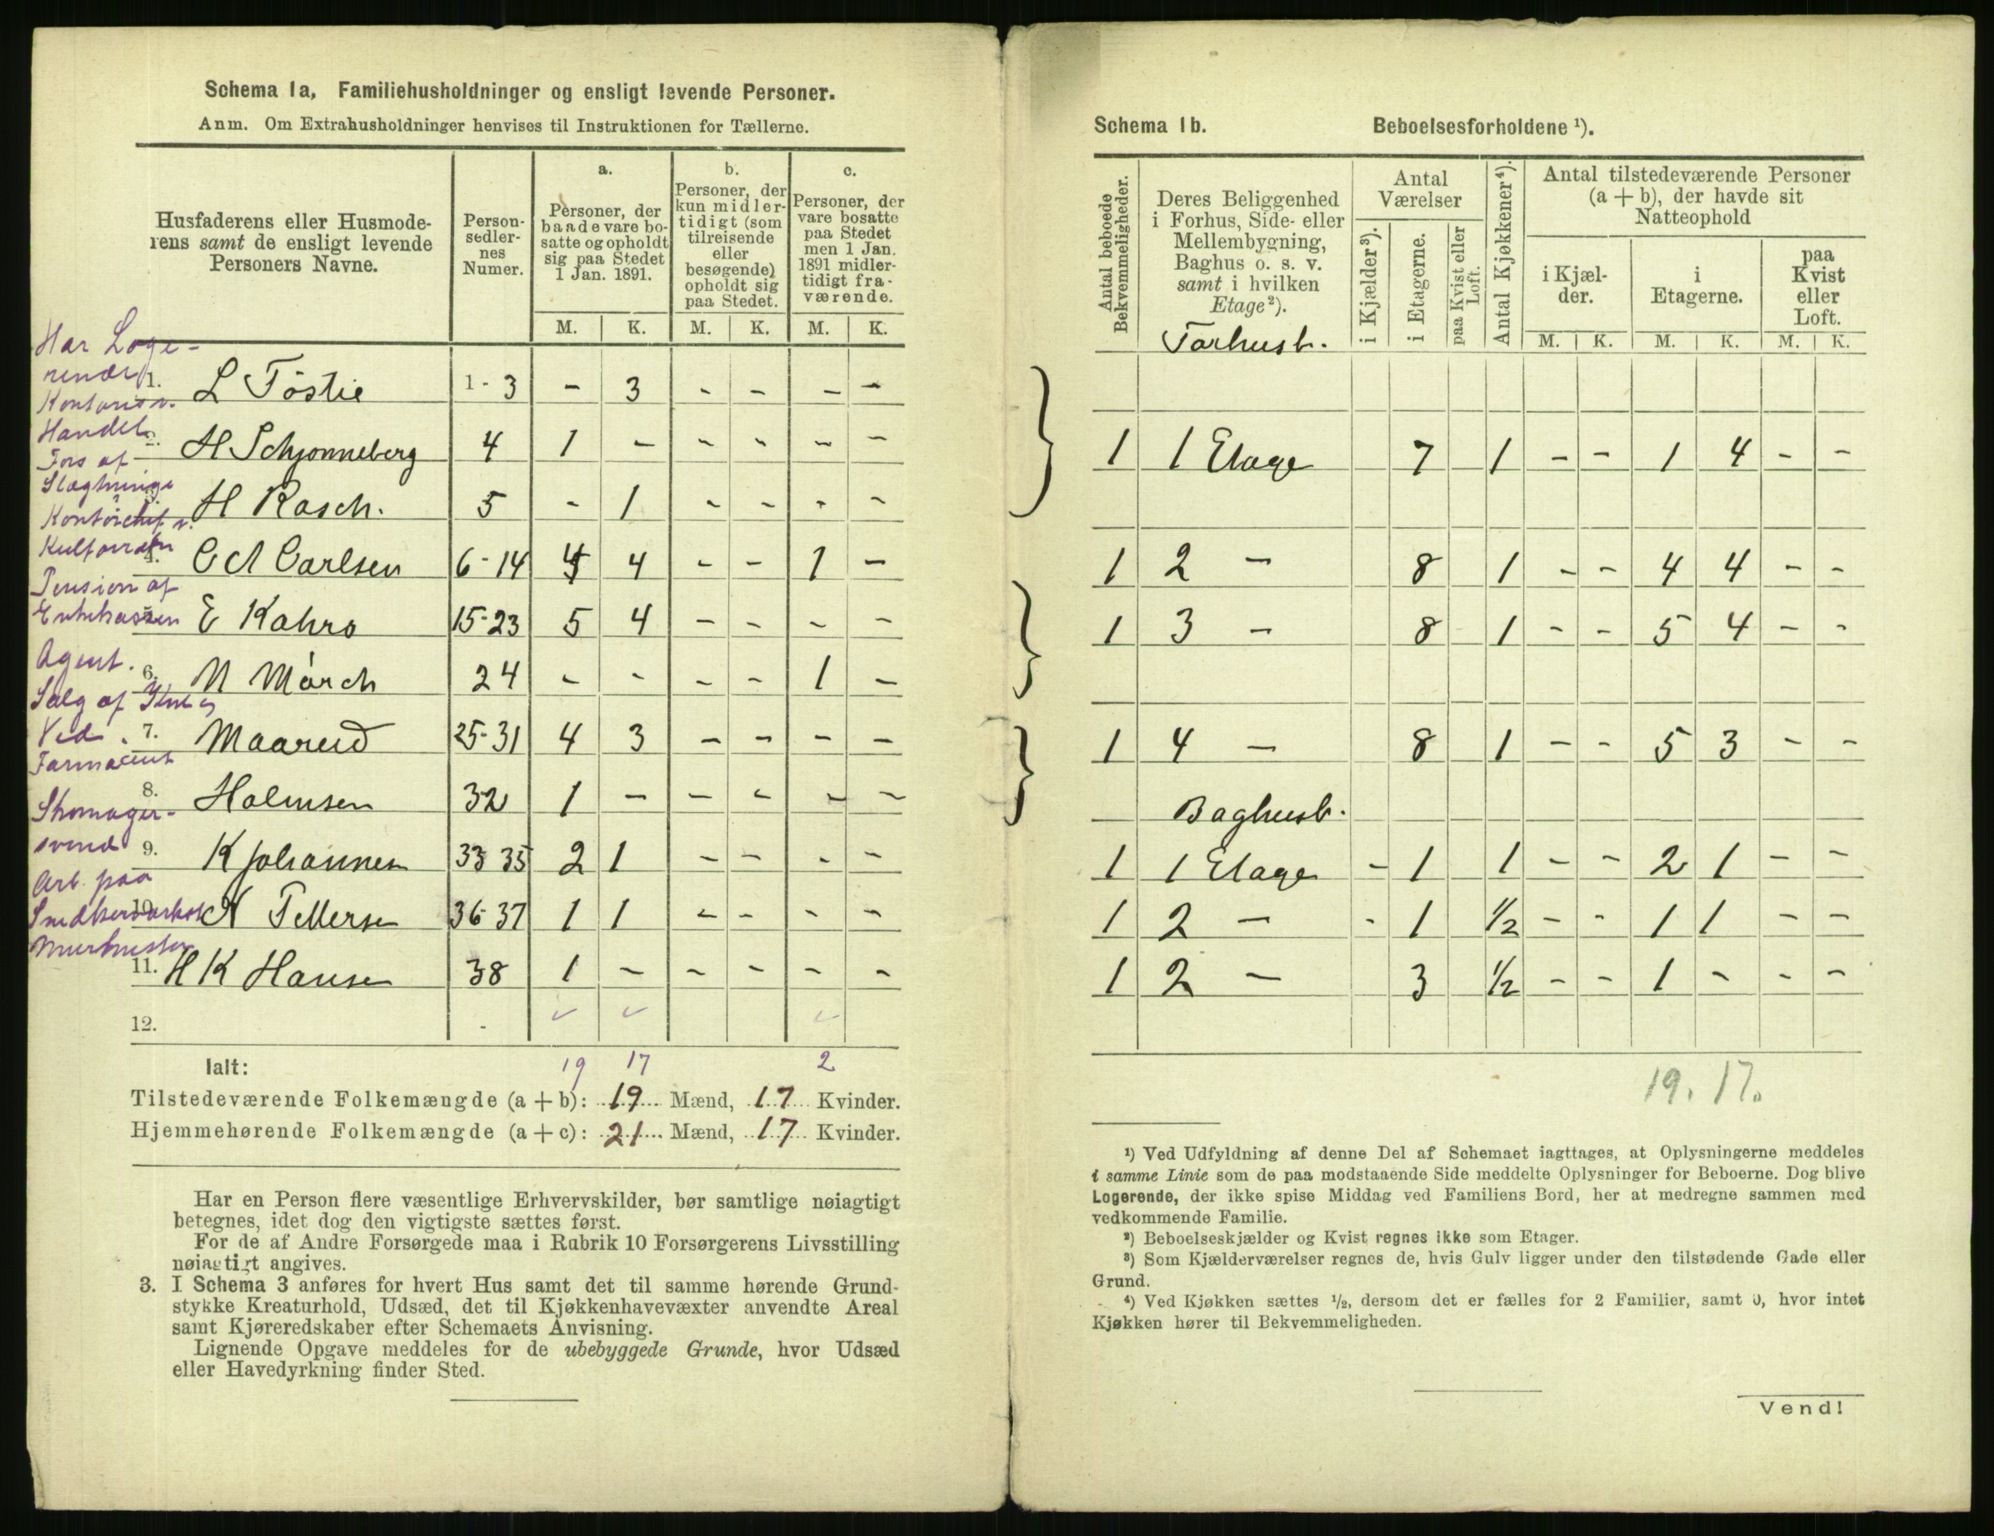 Schema 1a, Familiehusholdninger og ensligt levende Personer.
Anm. Om Extrahusholdninger henvises til Instruktionen for Tællerne.
Husfaderens eller Husmoderens samt de ensligt levende Personers Navne.
Personsedlernes Numer.
a. Personer, der baade vare bosatte og opholdt sig paa Stedet 1 Jan. 1891.
b. Personer, der kun midlertidigt (som tilreisende eller besøgende) opholdt sig paa Stedet.
c. Personer, der vare bosatte paa Stedet men 1 Jan. 1891 midlertidigt fraværende.
M. K. M. K. M. K.
Har Loge-
1. L Tostie 1-3 - 3 - - - -
Handel
2. H Schjonneberg 4 1 - - - - -
Fors af
Slægtninge
3. H Rasch. 5 - 1 - - - -
4. C A Carlsen 6-14 4 4 - - 1 -
Pension af
5. E Kahrs 15-23 5 4 - - - -
Agent.
6. N Mörch 24 - - - - 1 -
Salg af
Ved.
7. Maarud 25-31 4 3 - - - -
Farmaceut
8. Halmsen 32 1 - - - - -
Skomager-
svend
9. K Johannesen 33 35 2 1 - - - -
Arb. paa
10. N Pettersen 36-37 1 1 - - - -
Murmester
11. H K Hansen 38 1 - - - - -
12.
Ialt: 19 17 2
Tilstedeværende Folkemængde (a + b): 19 Mænd, 17 Kvinder.
Hjemmehørende Folkemængde (a + c): 21 Mænd, 17 Kvinder.
Har en Person flere væsentlige Erhvervskilder, bør samtlige nøiagtigt
betegnes, idet dog den vigtigste sættes først.
For de af Andre Forsørgede maa i Rubrik 10 Forsørgerens Livsstilling
nøiagtigt angives.
3. I Schema 3 anføres for hvert Hus samt det til samme hørende Grund-
stykke Kreaturhold, Udsæd, det til Kjøkkenhavevæxter anvendte Areal
samt Kjøreredskaber efter Schemaets Anvisning.
Lignende Opgave meddeles for de ubebyggede Grunde, hvor Udsæd
eller Havedyrkning finder Sted.
Schema 1b. Beboelsesforholdene ¹).
Antal beboede Bekvemmeligheder.
Deres Beliggenhed i Forhus, Side- eller Mellembygning, Baghus o. s. v. samt i hvilken Etage ²).
Antal Værelser
i Kjælder ³).
i Etagerne.
paa Kvist eller Loft.
Antal Kjøkkener ⁴).
Antal tilstedeværende Personer (a + b), der havde sit Natteophold
i Kjælder.
i Etagerne.
paa Kvist eller Loft.
M. K. M. K. M. K.
Forhusb.
1 1 Etage 7 1 - - 1 4 - -
1 2 - 8 1 - - 4 4 - -
1 3 - 8 1 - - 5 4 - -
1 4 - 8 1 - - 5 3 - -
Baghusb.
1 1 Etage - 1 1 - - 2 1 - -
1 2 - - 1 ½ - - 1 1 - -
1 2 - 3 ½ - - 1 - - -
19. 17.
¹) Ved Udfyldning af denne Del af Schemaet iagttages, at Oplysningerne meddeles
i samme Linie som de paa modstaaende Side meddelte Oplysninger for Beboerne. Dog blive
Logerende, der ikke spise Middag ved Familiens Bord, her at medregne sammen med
vedkommende Familie.
²) Beboelseskjælder og Kvist regnes ikke som Etager.
³) Som Kjælderværelser regnes de, hvis Gulv ligger under den tilstødende Gade eller
Grund.
⁴) Ved Kjøkken sættes ½, dersom det er fælles for 2 Familier, samt 0, hvor intet
Kjøkken hører til Bekvemmeligheden.
Vend!